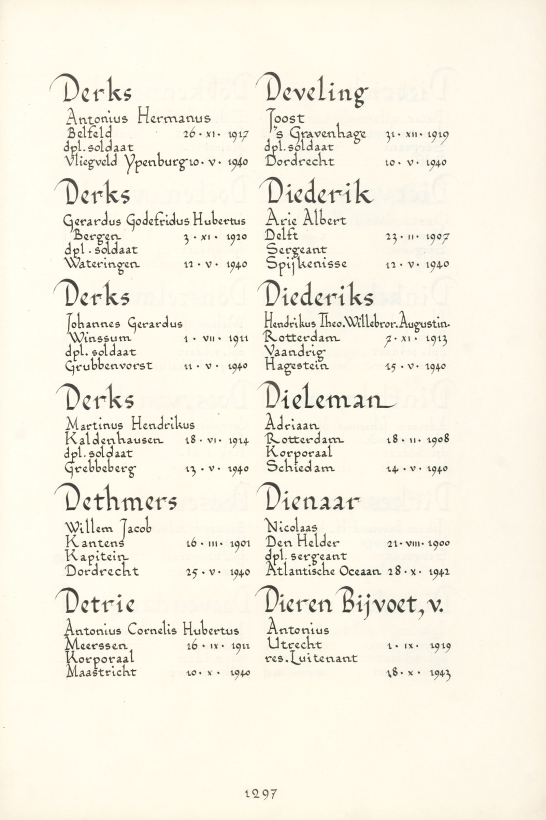 Derks
Antonius Hermanus
Belfeld 26 · XI · 1917
dpl. soldaat
Vliegveld Ypenburg 10 · V · 1940
Derks
Gerardus Godefridus Hubertus
Bergen 3 · XI · 1920
dpl. soldaat
Wateringen 12 · V · 1940
Derks
Johannes Gerardus
Winssum 1 · VII · 1911
dpl. soldaat
Grubbenvorst 11 · V · 1940
Derks
Martinus Hendrikus
Kaldenhausen 18 · VI · 1914
dpl. soldaat
Grebbeberg 13 · V · 1940
Dethmers
Willem Jacob
Kantens 16 · III · 1901
Kapitein
Dordrecht 25 · V · 1940
Detrie
Antonius Cornelis Hubertus
Meerssen 16 · IX · 1911
Korporaal
Maastricht 10 · X · 1940
Develing
Joost
's Gravenhage 31 · XII · 1919
dpl. soldaat
Dordrecht 10 · V · 1940
Diederik
Arie Albert
Delft 23 · II · 1907
Sergeant
Spijkenisse 12 · V · 1940
Diederiks
Hendrikus Theo. Willebror. Augustin.
Rotterdam 7 · XI · 1913
Vaandrig
Hagestein 15 · V · 1940
Dieleman
Adriaan
Rotterdam 18 · II · 1908
Korporaal
Schiedam 14 · V · 1940
Dienaar
Nicolaas
Den Helder 21 · VIII · 1900
dpl. sergeant
Atlantische Oceaan 28 · X · 1942
Dieren Bijvoet, v.
Antonius
Utrecht 1 · IX · 1919
res. Luitenant
18 · X · 1943
1297